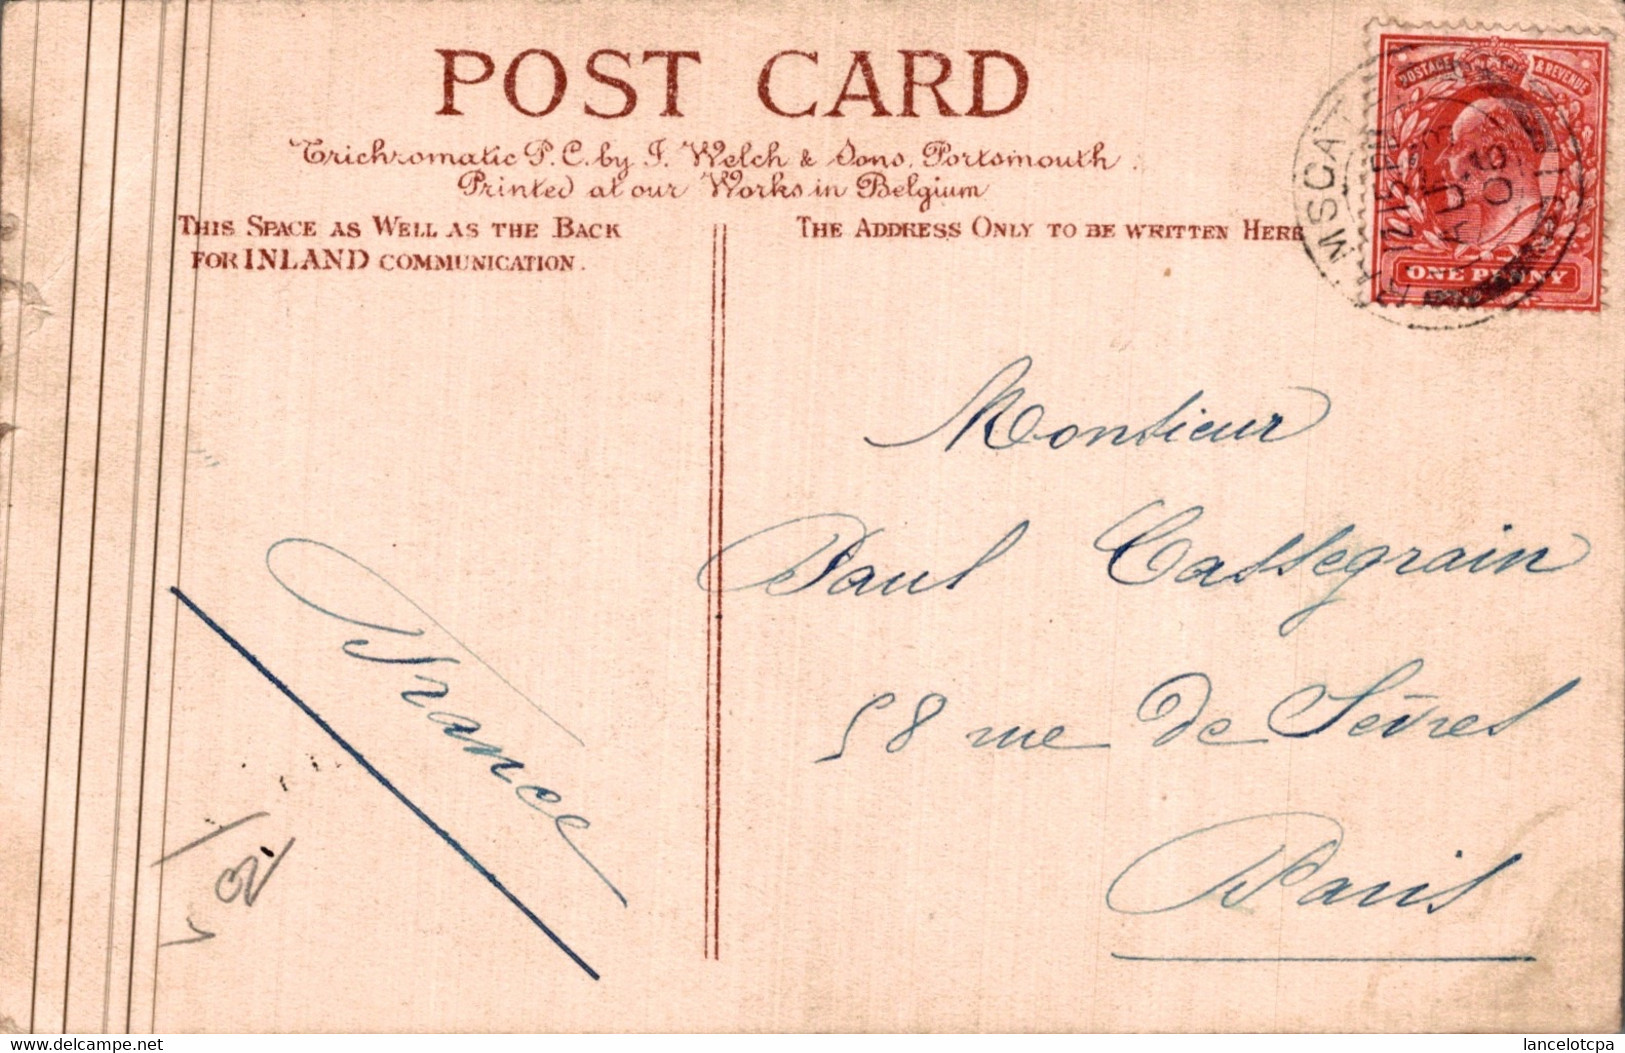 POST CARD
Trichromatic P.C. by J. Welch & Sons, Portsmouth.
Printed at our Works in Belgium
THIS SPACE AS WELL AS THE BACK
FOR INLAND COMMUNICATION.
THE ADDRESS ONLY TO BE WRITTEN HERE
POSTAGE & REVENUE
ONE PENNY
RAMSGATE
12.15 PM
AU
Monsieur
Paul Cassegrain
58 rue de Sèvres
Paris
France
delcampe.net
lancelotcpa